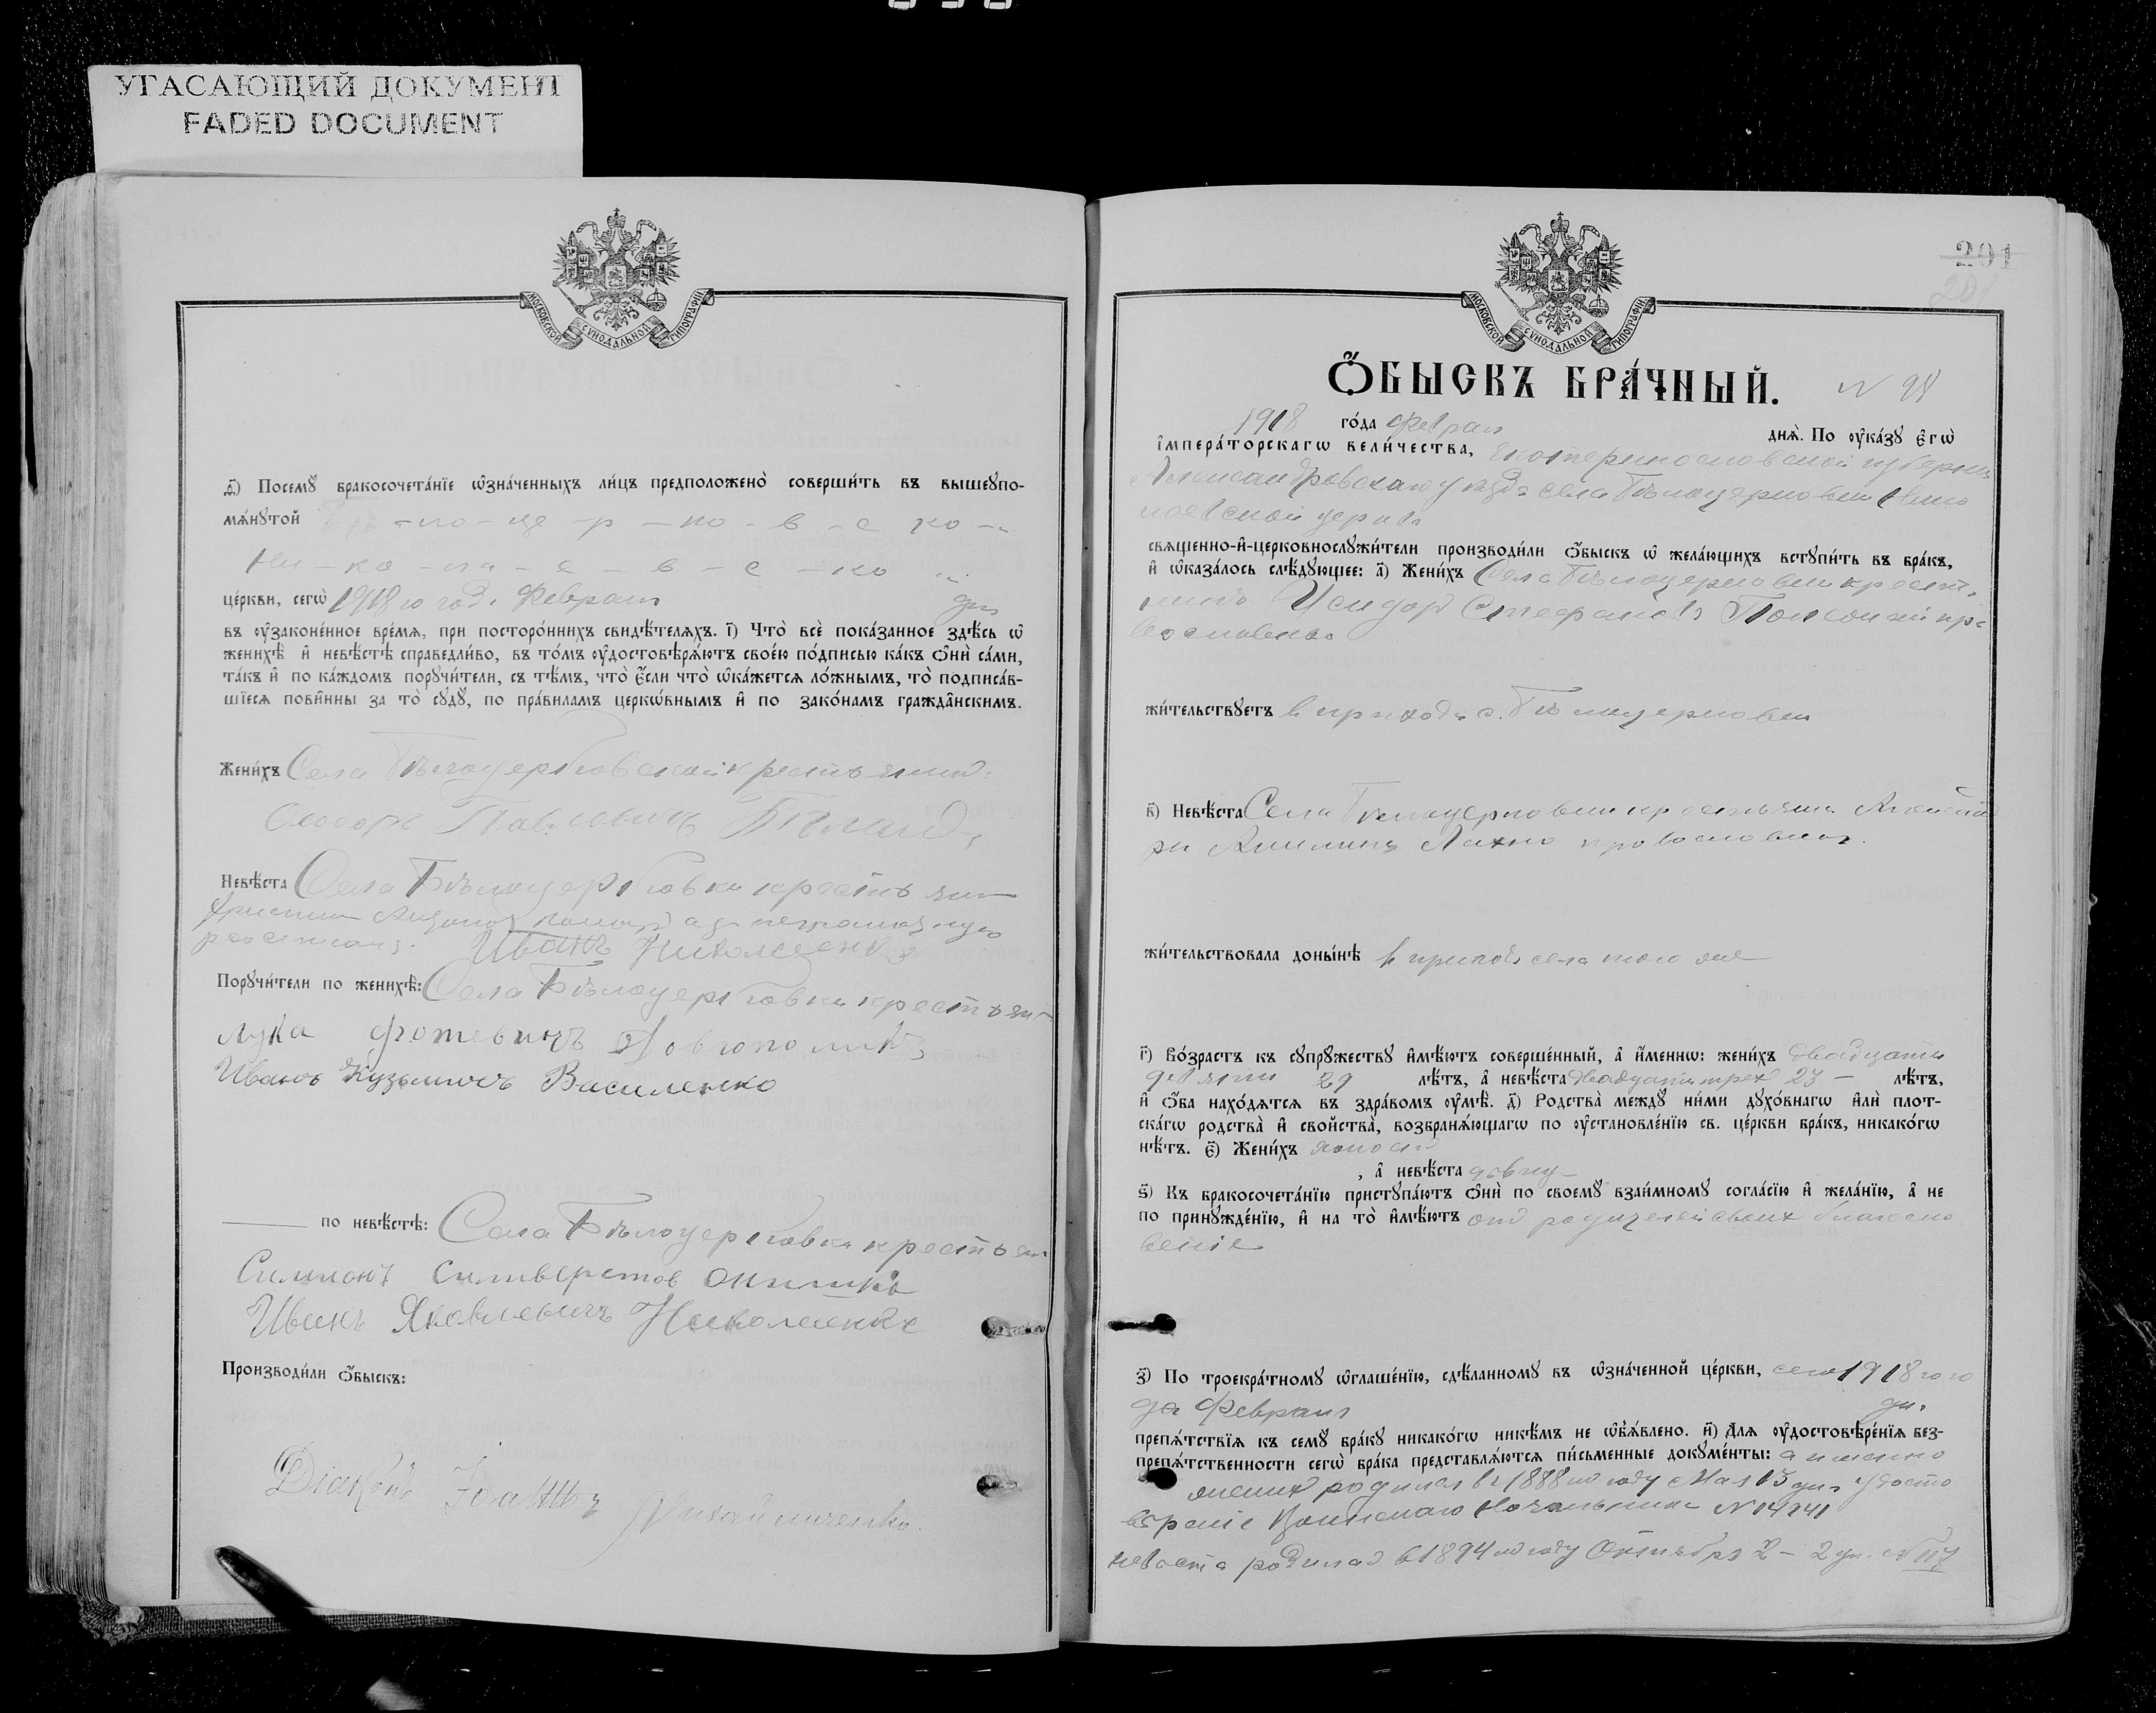 УГАСАЮЩИЙ ДОКУМЕНТ
FADED DOCUMENT
МОСКОВСКОЙ СѴНОДАЛЬНОЙ ТИПОГРАФІИ
д҃і) Посемꙋ̀ бракосочета́нїе ѡ҆зна́ченныхъ ли́цъ предположено̀ соверши́ть въ вышеꙋпо-
мѧ́нꙋтой Бѣ-ло-це-р-ко-в-с ко-
Ни-ко-ла-е-в-с-ко
це́ркви, сегѡ̀ 1918 го года Февраля дня
въ ᲂу҆законе́нное вре́мѧ, при посторо́ннихъ свидѣ́телѧхъ. і҃) Что̀ всѐ пока́занное здѣ́сь ѡ҆
женихѣ̀ и҆ невѣ́стѣ справедли́во, въ то́мъ ᲂу҆достовѣрѧ́ютъ свое́ю по́дписью ка́къ ѻ҆нѝ са́ми,
та́къ и҆ по ка́ждомъ порꙋчи́тели, съ тѣ́мъ, что̀ є҆́сли что̀ ѡ҆ка́жетсѧ ло́жнымъ, то̀ подписа́в-
шїесѧ пови́нны за то̀ сꙋдꙋ̀, по пра́виламъ церкѡ́внымъ и҆ по зако́намъ гражда́нскимъ.
Жени́хъ Села Бѣлоцерковской крестьянинъ
Ѳеодоръ Павловичъ
Невѣ́ста Села Бѣлоцерковки крестьян
неграмотную
Иванъ Николаенко
Порꙋчи́тели по женихѣ̀: Села Бѣлоцерковки крестьян
Лука Фотевичъ Довгополий
Иванъ Кузьмичъ Василенко
по невѣ́стѣ: Села Бѣлоцерковки крестьян
Симионъ Силивестров Онишко
Иванъ Яковлевичъ Николаенко
Производи́ли ѻ҆́быскъ:
Діаконъ Іоаннъ Михайличенко
201
МОСКОВСКОЙ СѴНОДАЛЬНОЙ ТИПОГРАФІИ
Ѻ҆́БЫСКЪ БРА́ЧНЫЙ. N 98
1918 го́да Февраля днѧ̀. По ᲂу҆ка́зꙋ є҆гѡ̀
і҆мпера́торскагѡ вели́чества, Екатеринославской губерніи
Александровскаго уезда села Бѣлоцерковки Нико
лаевской церкви
свѧще́нно-и҆-церковнослꙋжи́тели производи́ли ѻ҆́быскъ ѡ҆ жела́ющихъ встꙋпи́ть въ бра́къ,
и҆ ѡ҆каза́лось слѣ́дꙋющее: а҃) Жени́хъ Села Бѣлоцерковки крестья
нинъ Исидор Стефановъ пра
вославнаго
жи́тельствꙋетъ в приходе с. Бѣлоцерковки
в҃) Невѣ́ста Села Белоцерковки крестьянка
Лахно православная.
жи́тельствовала доны́нѣ в приходе села того же
г҃) Во́зрастъ къ сꙋпрꙋ́жествꙋ и҆мѣ́ютъ соверше́нный, а҆ и҆́меннѡ: жени́хъ двадцати
девяти 29 лѣ́тъ, а҆ невѣ́ста двадцати трех 23 - лѣ́тъ,
и҆ ѻ҆́ба нахо́дѧтсѧ въ здра́вомъ ᲂу҆мѣ̀. д҃) Родства̀ междꙋ̀ ни́ми дꙋхо́внагѡ и҆лѝ плот-
ска́гѡ родства̀ и҆ сво́йства, возбранѧ́ющагѡ по ᲂу҆становле́нїю св. це́ркви бра́къ, никако́гѡ
нѣ́тъ. є҃) Жени́хъ холост
, а҆ невѣ́ста девица
ѕ҃) Къ бракосочета́нїю пристꙋпа́ютъ ѻ҆нѝ по своемꙋ̀ взаи́мномꙋ согла́сїю и҆ жела́нїю, а҆ не
по принꙋжде́нїю, и҆ на то̀ и҆мѣ́ютъ от родителей своих благосло
веніе
з҃) По троекра́тномꙋ ѡ҆глаше́нїю, сдѣ́ланномꙋ въ ѡ҆зна́ченной це́ркви, сего 1918 го го
да Февраля дн.
препѧ́тствїѧ къ семꙋ̀ бра́кꙋ никако́гѡ никѣ́мъ не ѡ҆б̾ѧ́влено. и҃) Длѧ ᲂу҆достовѣре́нїѧ без-
препѧ́тственности сегѡ̀ бра́ка представлѧ́ютсѧ пи́сьменные докꙋме́нты: а именно
жених родился в 1888 м году Мая 15 дня удосто
верение Воинскаго Начальника N 14241
невеста родилас в 1894 м году Октября 2 - 2 дн.